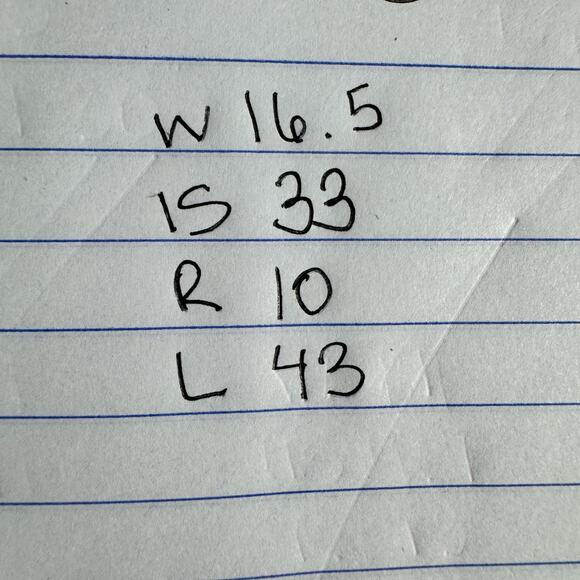 W 16.5
IS 33
R 10
L 43